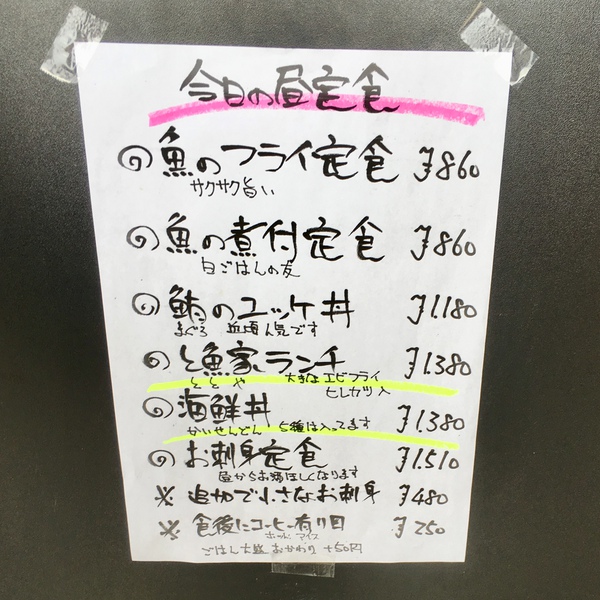 今日の昼定食
魚のフライ定食 ¥860
サクサク旨い
魚の煮付定食 ¥860
白ごはんの友
鮪のユッケ丼 ¥1.180
まぐろ 人気です
と魚家ランチ ¥1.380
ととや 大きなエビフライ
ヒレカツ入
海鮮丼 ¥1.380
かいせんどん 5種は入ってます
お刺身定食 ¥1.510
昼からお酒ほしくなります
※ 追加で小さなお刺身 ¥480
※ 食後にコーヒー有り〼 ¥250
ホット アイス
ごはん大盛 おかわり +50円